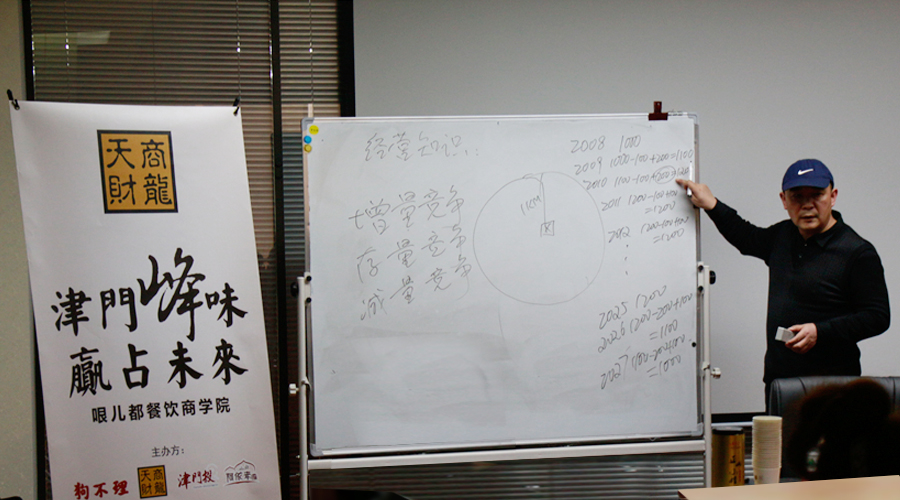 天商
财龍
津門峰味
赢占未來
哏儿都餐饮商学院
主办方：
狗不理
天商
财龍
津門
经营知识：
增量竞争
存量竞争
减量竞争
1KM
2008 1000
2009 1000-100+200=1100
2010 1100-100+200=120
2011 1200-100+
=1200
2012 1200-100+100
=1200
2025 1200
2026 1200-200+100
=1100
2027 1100-200+100
=1000